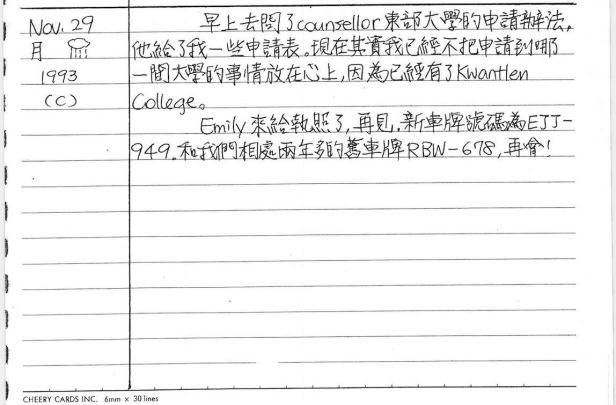 Nov. 29
月
1993
(C)
早上去問了counsellor東部大學的申請辦法,
他給了我一些申請表。現在其實我已經不把申請到哪
一間大學的事情放在心上,因為已經有了Kwantlen
College。
Emily來給執照了,再見,新車牌號碼為EJJ-
949.和我們相處兩年多的舊車牌RBW-678,再會!
CHEERY CARDS INC. 6mm × 30 lines